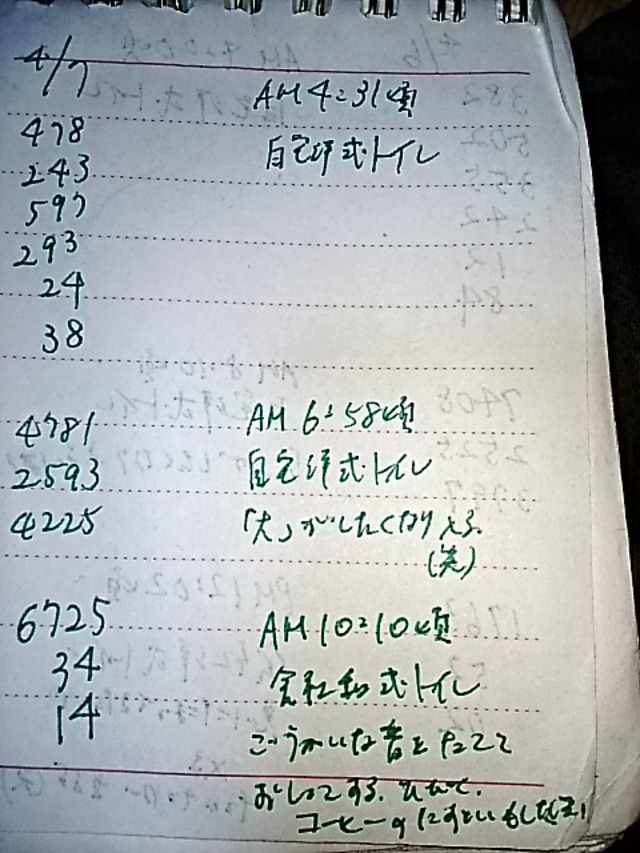 4/7
AM 4:31頃
478
自宅洋式トイレ
243
597
293
24
38
4781
AM 6:58頃
2593
自宅洋式トイレ
4225
「大」がしたくなり
(笑)
6725
AM 10:10頃
34
会社和式トイレ
14
ごうかいな音をたてて
おしっこする。
コーヒーの